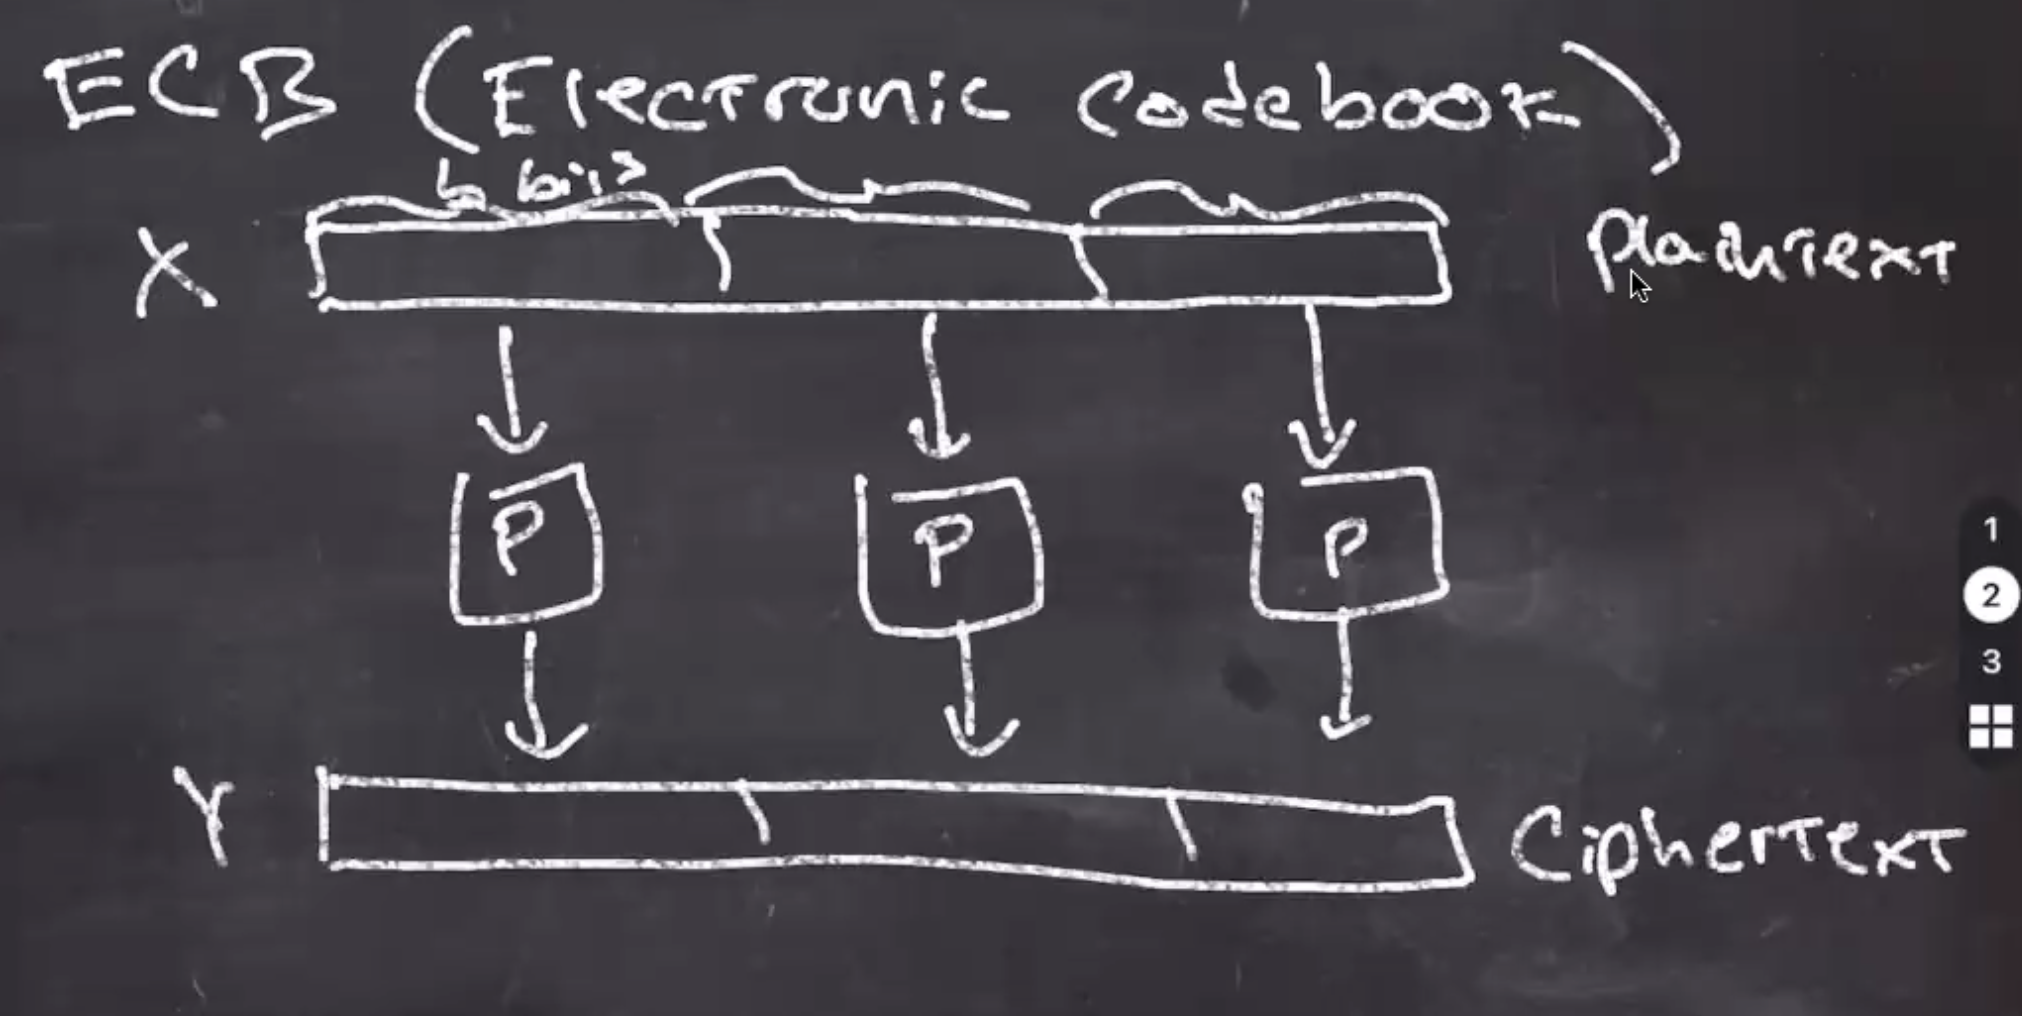 ECB (Electronic Codebook)
b bits
X
plaintext
P P P
Y
Ciphertext
1
2
3